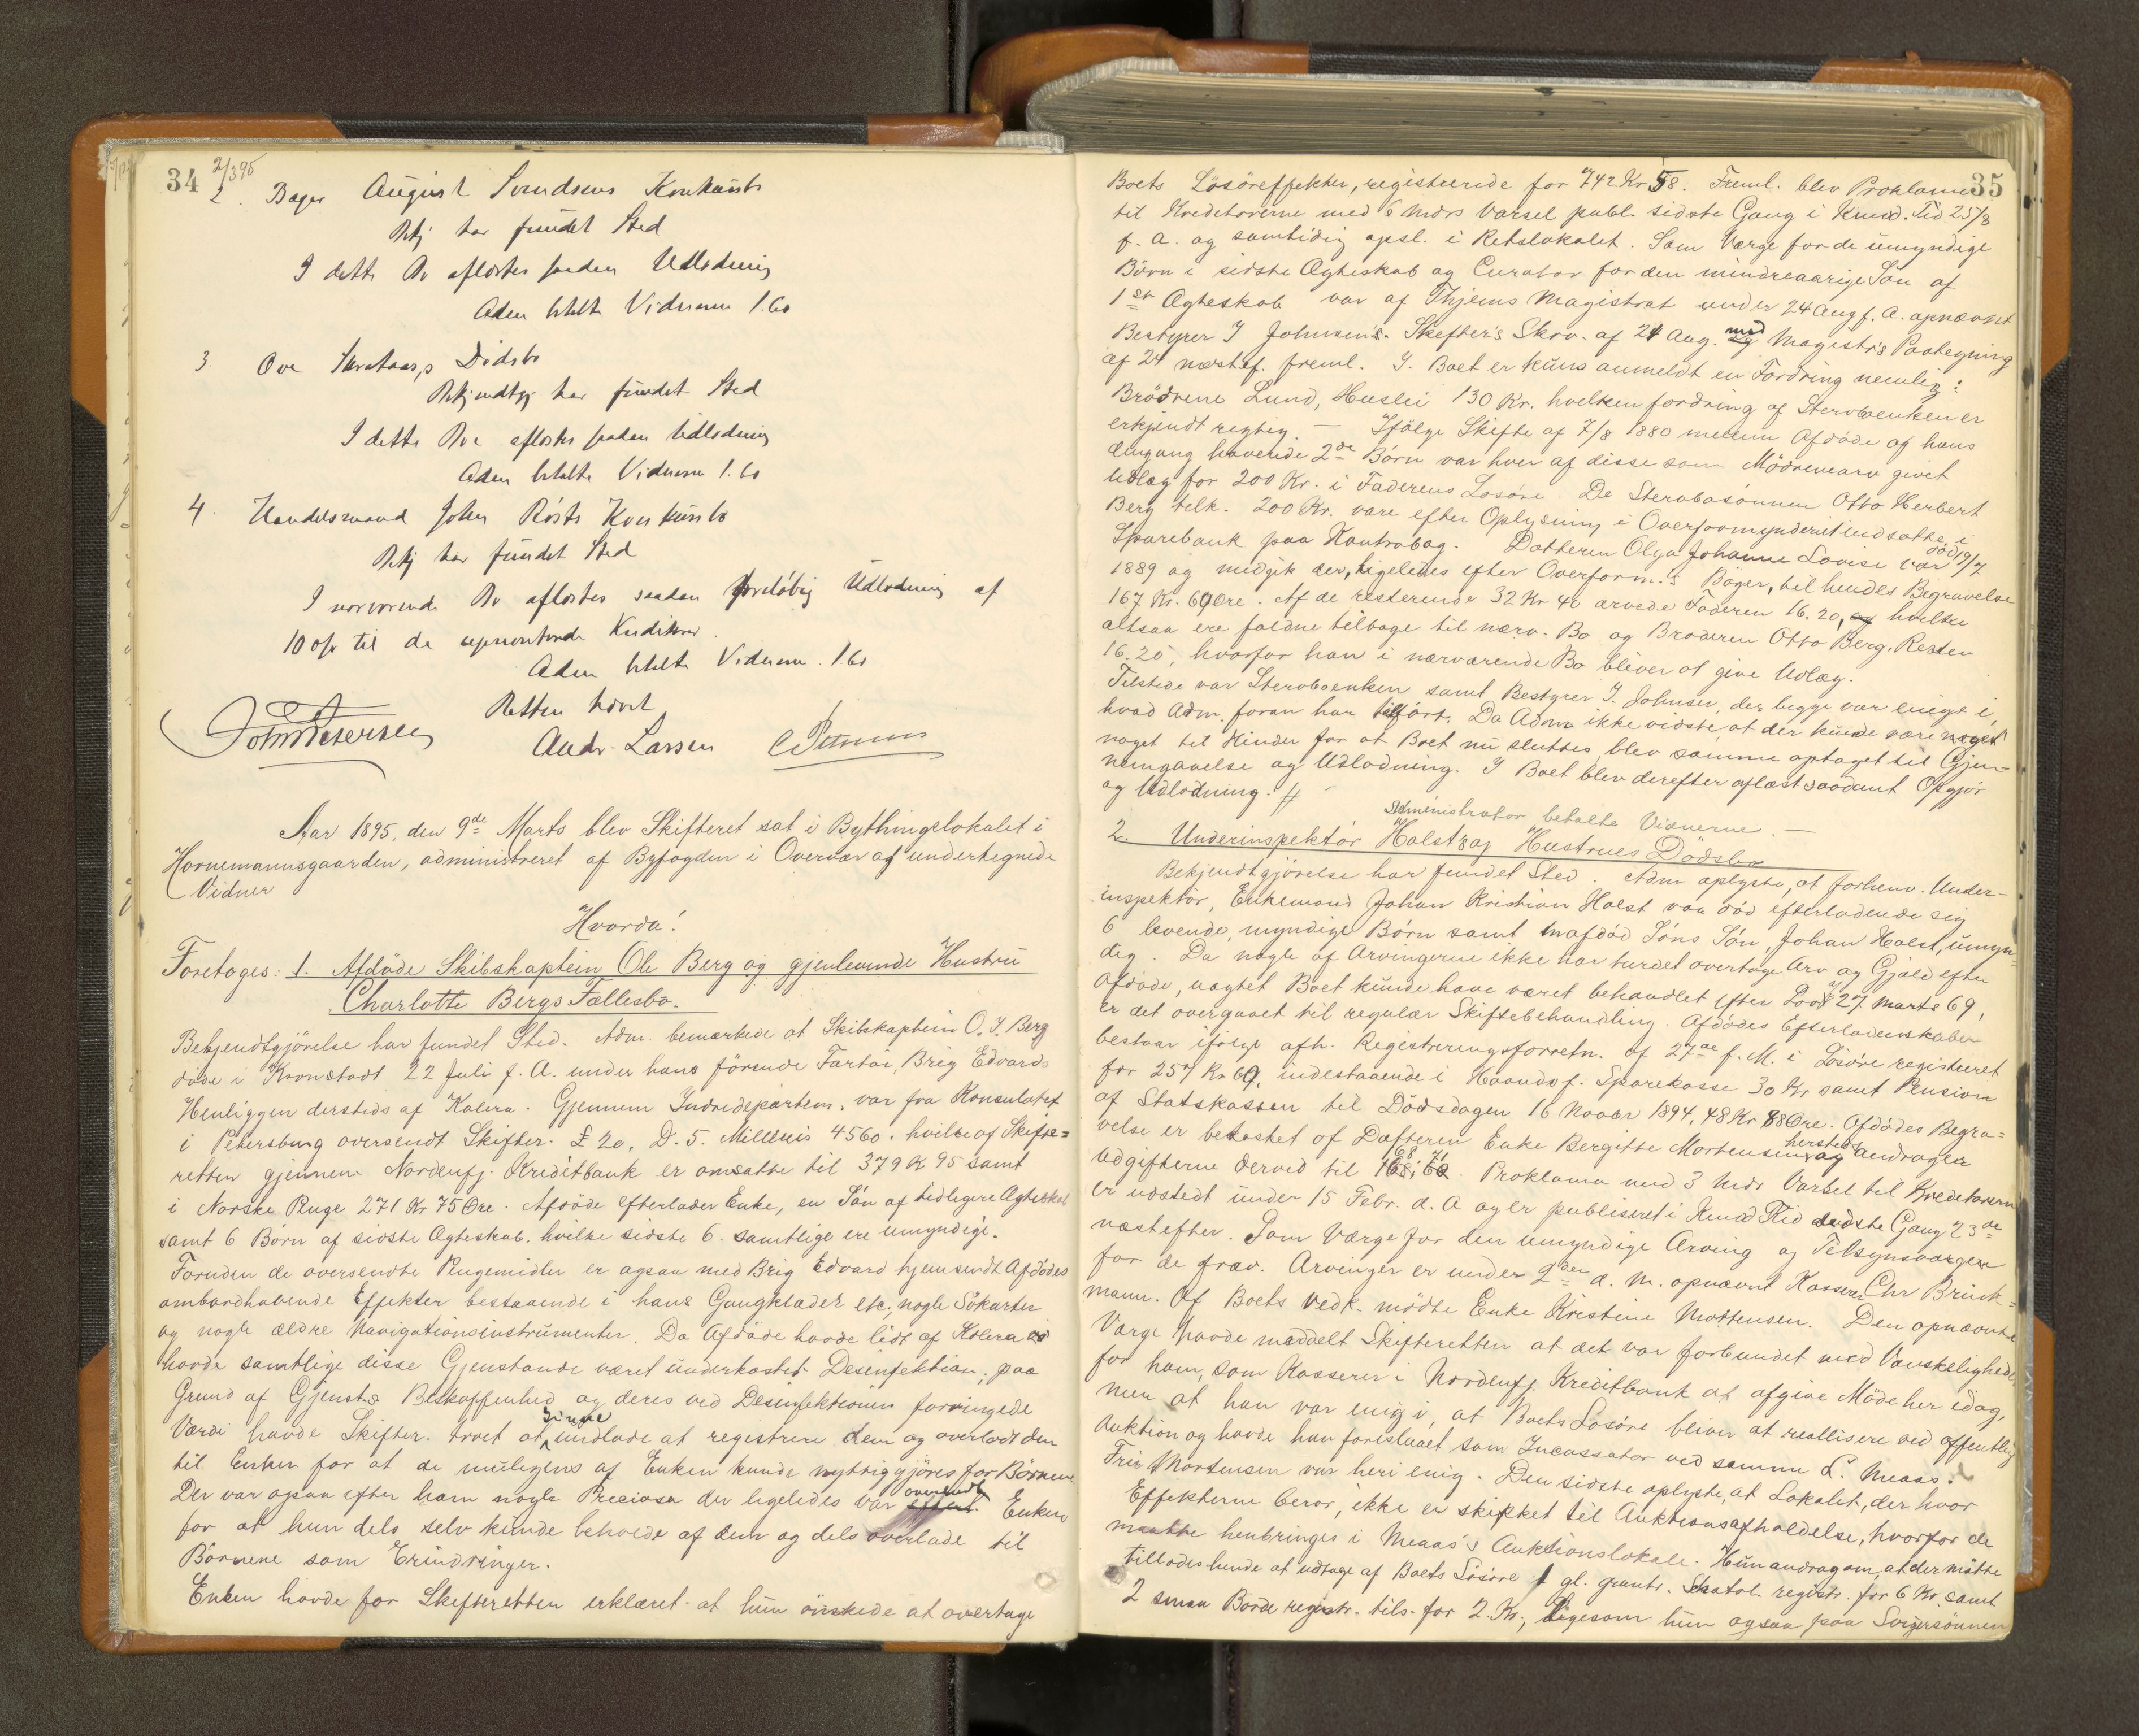 34 2/3 95
2. Bager August Svendsens Konkursbo
Bkj har fundet Sted
I dette Bo aflæstes saadan Udlodning
Adm betalte Vidnerne 1.60
3. Ove Dødsbo
Bekjendtgj har fundet Sted
I dette Bo aflæstes saadan Udlodning
Adm betalte Vidnerne 1.60
4. Handelsmand John Røsts Konkursbo
Bkj har fundet Sted
I nærværende Bo aflæstes saadan foreløbig Udlodning af
10 o/o til de uprioriterede Kreditorer.
Adm betalte Viderne. 1.60
Retten hævet
John Petersen Andr. Larsen
Aar 1895, den 9de Marts blev Skifteret sat i Bythingslokalet i
Hornemannsgaarden, administreret af Byfogden i Overvær af undertegnede
Vidner
Hvorda!
Foretoges: 1. Afdøde Skibskaptein Ole Berg og gjenlevende Hustru
Charlotte Bergs Fællesbo.
Bekjendtgjørelse har fundet Sted. Adm. bemærkede at Skibskaptein O. J. Berg
døde i Kronstadt 22 Juli f. A. under hans førende Fartøi, Brig Edvards
Henliggen dersteds af Kolera. Gjennem Indredepartem. var fra Konsulatet
i Petersburg oversendt Skifter. £ 20. D. 5. Millreis 4560. hvilke af Skifte=
retten gjennem Nordenfj. Kreditbank er omsatte til 379 K 95 samt
i Norske Penge 271 Kr 75 Øre. Afdøde efterlader Enke, en Søn af tidligere Ægteskab
samt 6 Børn af sidste Ægteskab. hvilke sidste 6 samtlige ere umyndige.
Foruden de oversendte Pengemidler er ogsaa med Brig Edvard hjemsendt Afdødes
ombordhavende Effekter bestaaende i hans Gangklæder etc, nogle Søkarter
og nogle ældre Navigationsinstrumenter. Da Afdøde havde lidt af Kolera
havde samtlige disse Gjenstande været underkastet Desinfektion; paa
Grund af Gjensts Beskaffenhed og deres ved Desinfektionen forringede
Værdi havde Skifter. troet at burde undlade at registrere dem og overladt dem
til Enken for at de muligens af Enken kunde nyttiggjøres for Børnene
Der var ogsaa efter ham nogle Preciosa der ligeledes var overladt Enken
for at hun dels selv kunde beholde af dem og dels overlade til
Børnene som Erindringer.
Enken havde for Skifteretten erklæret at hun ønskede at overtage
35
Boets Løsøreffekter, registrerede for 742 Kr 58. Freml. blev Proklama
til Kreditorerne med 6 Mdrs Varsel publ. sidste Gang i Kund. Tid 25/8
f. A. og samtidig opsl. i Retslokalet. Som Værge for de umyndige
Børn i sidste Ægteskab og Curator for den mindreaarige Søn af
1ste Ægteskab var af Thjems Magistrat under 24 Aug f. A. opnævnt
Bestyrer J Johnsen. Skifter's Skrv. af 21 Aug. med Magistr's Paategning
af 24 næstef. freml. I. Boet er kuns anmeldt en Fordring nemlig:
Brødrene Lund, Huslei 130 Kr. hvilken fordring af Stervboenken er
erkjendt rigtig. — Ifølge Skifte af 7/8 1880 mellem Afdøde og hans
dengang havende 2de Børn var hver af disse som Mødrenearv givet
Udlæg for 200 Kr. i Faderens Løsøre. De Stervbosønnen Otto Herbert
Berg tilk. 200 Kr. vare efter Oplysning i Overformynderiet indsatte i
Sparebank paa Kontrabog. Datteren Olga Johanne Lovise var død 19/7
1889 og medgik der, ligeledes efter Overform.s Bøger, til hendes Begravelse
167 Kr. 60 Øre. Af de resterende 32 Kr 40 arvede Faderen 16.20, hvilke
altsaa ere faldne tilbage til nærv. Bo og Broderen Otto Berg. Resten
16.20, hvorfor han i nærværende Bo bliver at give Udlæg.
Tilstede var Stervboenken samt Bestyrer J. Johnsen, der begge var enige i,
hvad Adm. foran har tilført. Da Adm ikke vidste, at der kunde være noget
noget til Hinder for at Boet nu sluttes, blev samme optaget til Gjen-
nemgaaelse og Udlodning. I Boet blev derefter aflæst saadant Opgjør
og Udlodning. #
Administrator betalte Vidnerne. —
2. Underinspektør Holst og Hustrues Dødsbo
Bekjendtgjørelse har fundet Sted. Adm oplyste, at forhenv. Under-
inspektør, Enkemand Johan Kristian Holst var død efterladende sig
6 levende, myndige Børn samt en afdød Søns Søn, Johan Holst, umyn=
dig. Da nogle af Arvingerne ikke har turdet overtage Arv og Gjæld efter
Afdøde, uagtet Boet kunde have været behandlet efter Lov af 27 Marts 69,
er det overgaaet til regulær Skiftebehandling. Afdødes Efterladenskaber
bestaar ifølge afh. Registreringsforretn. af 27de f. M. i Løsøre registreret
for 257 Kr 60, indestaaende i Haandv. Sparekasse 30 Kr samt Pension
af Statskassen til Dødsdagen 16 Novbr 1894, 48 Kr 88 Øre. Afdødes Begra=
velse er bekostet af Datteren Enke Bergitte Mortensen hersteds og andrager
Udgifterne derved til 168,71. Proklama med 3 Mdr Varsel til Kreditorerne
er udstedt under 15 Febr. d. A og er publiseret i Kund Tid sidste Gang 23de
næstefter. Som Værge for den umyndige Arving og Tilsynsværge
for de fravr. Arvinger er under 2den d. M. opnævnt Kasserer Chr Brink=
mann. Af Boets Vedk. mødte Enke Kristine Mortensen. Den opnævnte
Værge havde meddelt Skifteretten at det var forbundet med Vanskeligheder
for ham, som Kasserer i Nordenfj. Kreditbank at afgive Møde her idag,
men at han var enig i, at Boets Løsøre bliver at reallisere ved offentlig
Auktion og havde han foreslaaet som Incassator ved samme L. Meaas.
Fru Mortensen var heri enig. Den sidste oplyste, at Lokalet, der hvor
Effekterne beror, ikke er skikket til Auktionsafholdelse, hvorfor de
maatte henbringes i Meaas's Auktionslokale. Hun androg om, at der måtte
tillades hende at udtage af Boets Løsøre 1 gl. Skatol registr. for 6 Kr. samt
2 smaa Borde registr. tils. for 2 Kr., ligesom hun ogsaa paa Svigersønnen